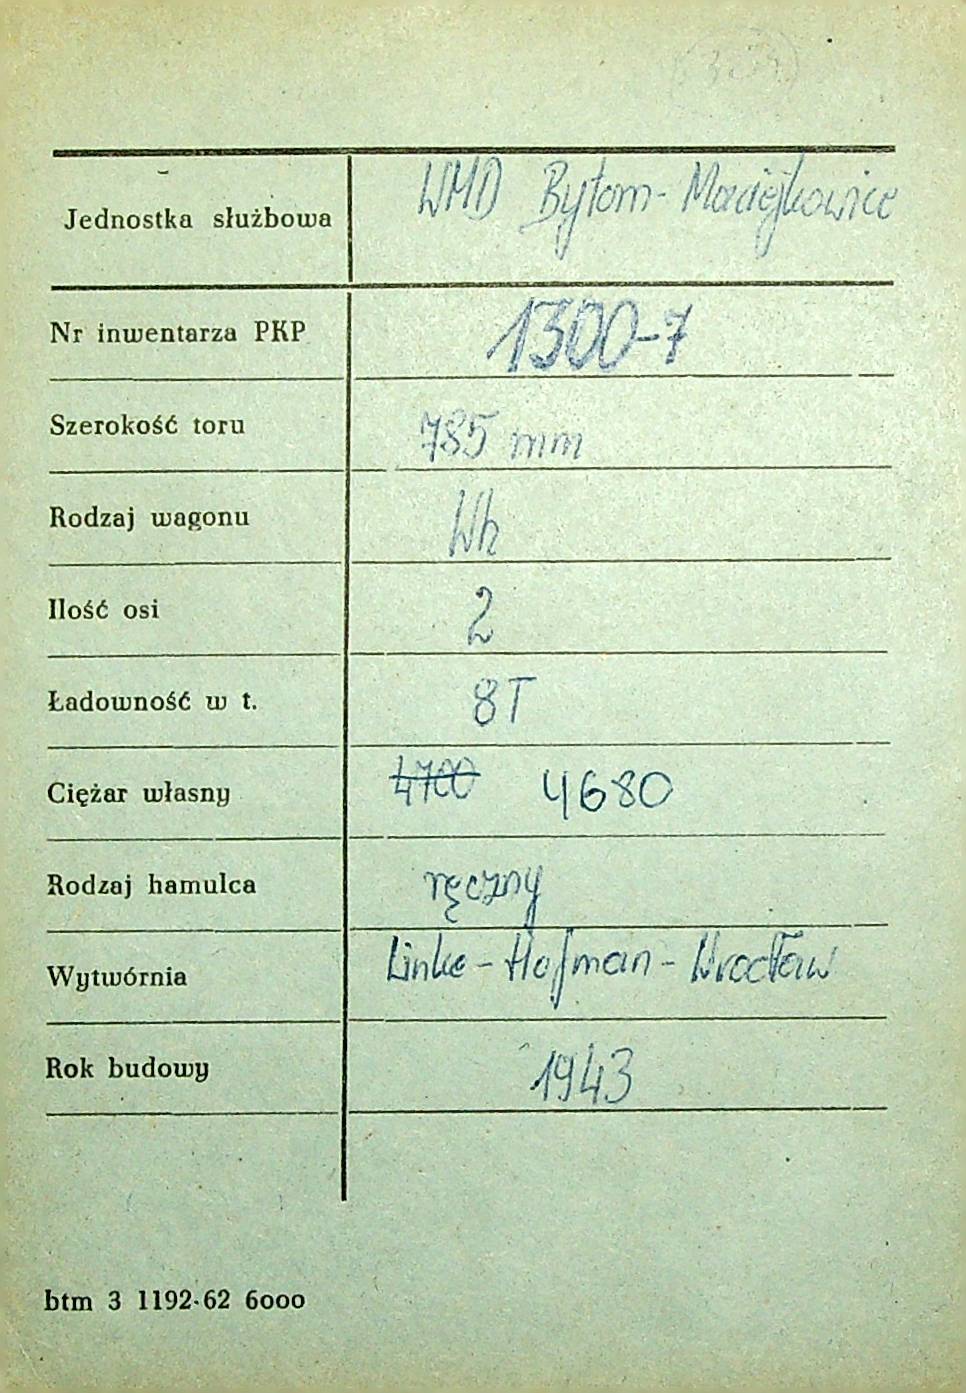 Jednostka służbowa WMD Bytom-Maciejkowice
Nr inwentarza PKP 1300-7
Szerokość toru 785 mm
Rodzaj wagonu Wh
Ilość osi 2
Ładowność w t. 8T
Ciężar własny 4700 4680
Rodzaj hamulca ręczny
Wytwórnia Linke-Hofman-Wrocław
Rok budowy 1943
btm 3 1192-62 6000